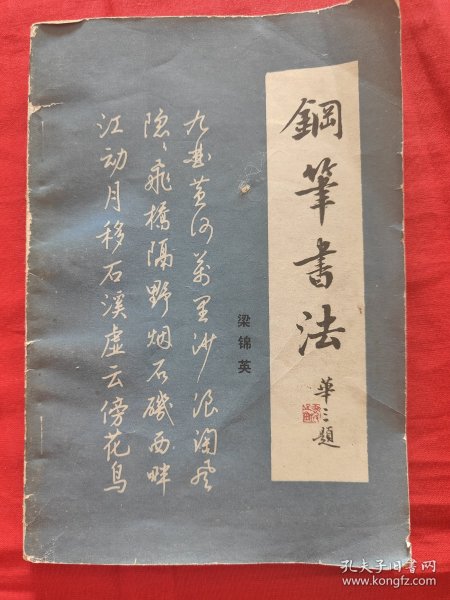 鋼筆書法
華三題
梁锦英
九曲黄河萬里沙浪淘风
隐〻飛橋隔野烟石磯西畔
江动月移石溪虚云傍花鸟
孔夫子旧书网
www.kongfz.com